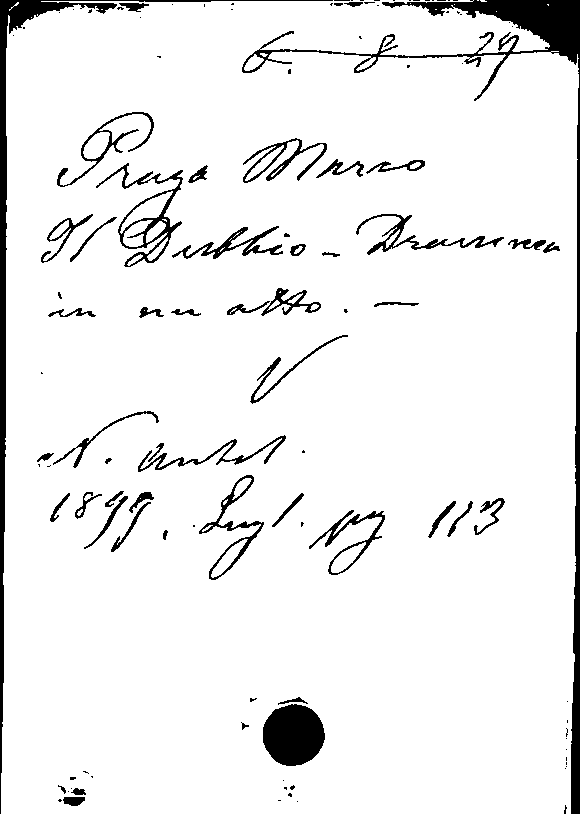 6. 8. 27
Praga Marco
Il Dubbio - Dramma
in un atto. —
V
N. Antol.
1899. Lugl. pg 113